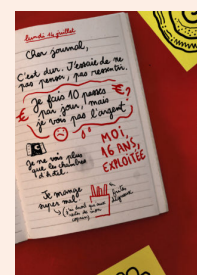 Lundi 14 juillet
Cher journal,
C'est dur. J'essaie de ne
pas penser, pas ressentir.
Je fais 10 passes
par jour, mais
je vois pas l'argent
€ €?
MOI,
16 ANS,
EXPLOITÉE
Je ne vois plus
que les chambres
d'hôtel.
Je mange
super mal
frites